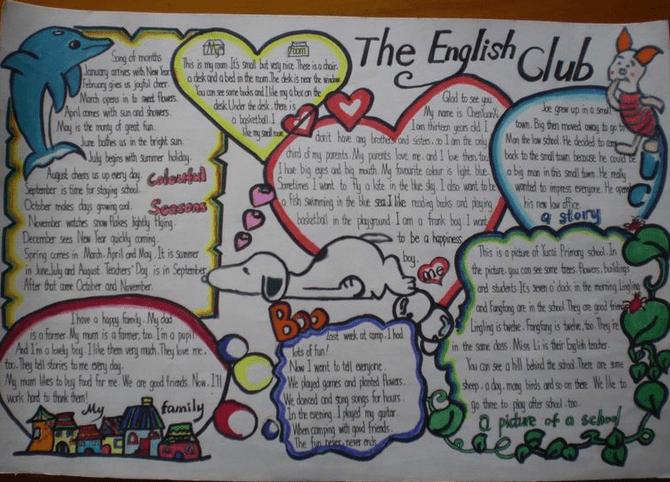 The English Club
Song of months
January arrives with New Year
February gives us joyful cheer.
March opens in to sweet flowers.
April comes with sun and showers.
May is the monty of great fun.
June bathes us in the bright sun.
July begins with summer holiday.
August cheers us up every day.
September is time for staying school.
October makes days growing cool.
November watches snow flakes lightly flying.
December sees New Year quickly coming.
Spring comes in March. April and May. It is summer
in June, July and August. Teachers' Day is in September
After that come October and November.
Colourful
Seasons
My room
This is my room. It's small but very nice. There is a chair.
a desk and a bed in the room. The desk is near the window
You can see some books and I like my a box on the
desk. Under the desk, there is
a basketball. I
like my small room
Glad to see you.
My name is
I am thirteen years old. I
don't have any brothers and sisters, so I am the only
child of my parents. My parents love me, and I love then, too.
I have big eyes and big mouth. My favourite colour is light blue.
Sometimes I want to fly a kite in the blue sky. I also want to be
a fish swimming in the blue sea. I like reading books and playing
basketball in the playground. I am a frank boy. I want
to be a happiness
boy.
me
Joe grew up in a small
town. Big then moved away to go to
Man the low school. He decided to come
back to the small town because he could be
a big man in this small town. He really
wanted to impress everyone. He opend
his new law office.
a story
I have a happy family. My dad
is a former. My mum is a former, too. I'm a pupil.
And I'm a lovely boy. I like them very much. They love me,
too. They tell stories to me every day.
My mum likes to buy food for me. We are good friends. Now, I'll
work hard to thank them!
My family
Boo
Last week at camp. I had
lots of fun!
Now I want to tell everyone.
We played games and planted flowers.
We danced and sang songs for hours.
In the evening. I played my guitar.
When camping with good friends.
The fun never never ends.
This is a picture of Yucai Primary school. In
the picture. you can see some trees. flowers, buildings
and students. It's seven o' clock in the morning. Lingling
and Fangfang are in the school. They are good friends
Lingling is twelve. Fangfang is twelve, too. They're
in the same class. Miss Li is their English teacher.
You can see a hill behind the school. There are some
sheep. a dog. many birds and so on there. We like to
go there to play after school, too.
a picture of a school